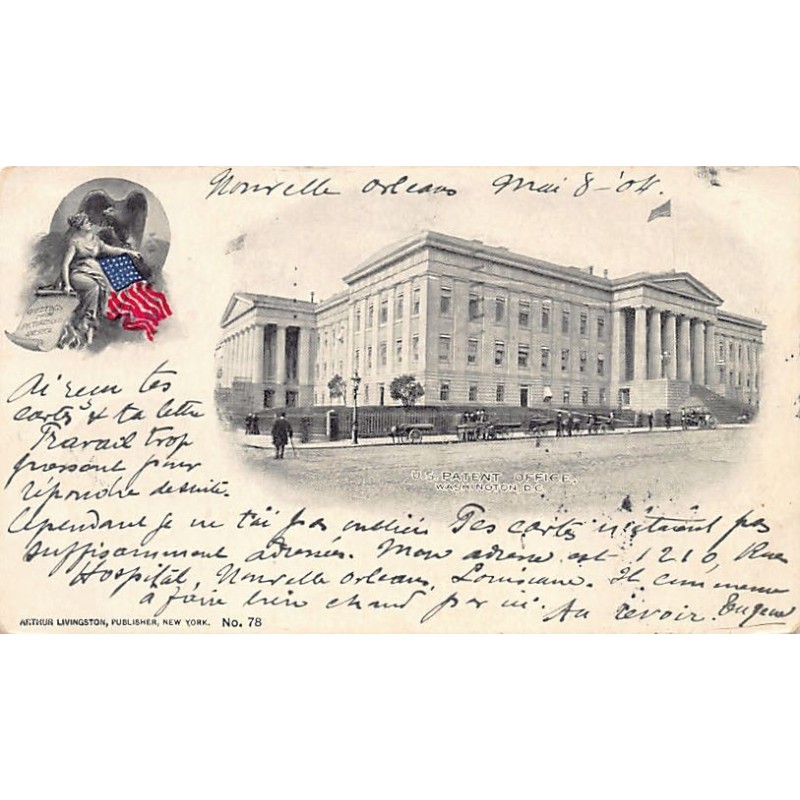 Nouvelle Orleans Mai 8 - '04.
GREETINGS FROM
U.S. PATENT OFFICE,
WASHINGTON, D.C.
Ai reçu tes
cartes & ta lettre
Travail trop
pressant pour
répondre de suite.
Cependant je ne t'ai pas oublié. Tes cartes n'étaient pas
suffisamment adressées. Mon adresse est 1210, Rue
Hospital, Nouvelle Orleans, Louisiane. Il commence
à faire bien chaud par ici. Au revoir. Eugene
ARTHUR LIVINGSTON, PUBLISHER, NEW YORK. No. 78